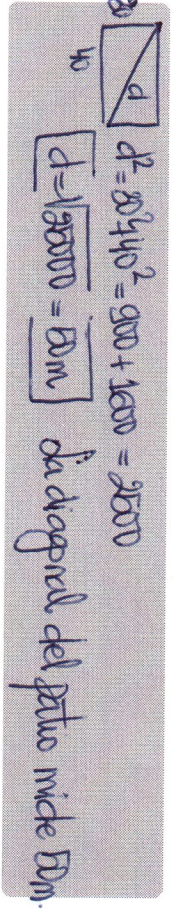 30
d
40
d² = 30² + 40² = 900 + 1600 = 2500
d = √2500 = 50m
La diagonal del patio mide 50m.